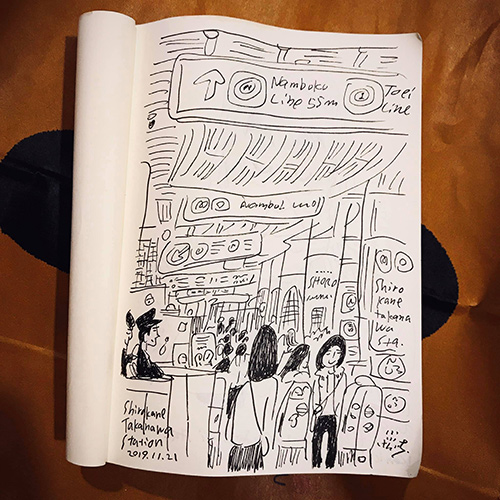 Namboku
Line 55m
Toei
Line
Shiro
kane
takana
wa
Sta.
Shirokane
Takanawa
Station
2019.11.21